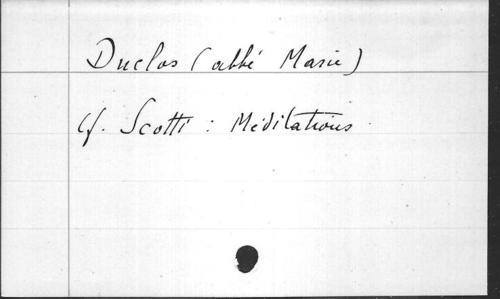 Duclos (abbé Marie)
cf. Scotti : Méditations.